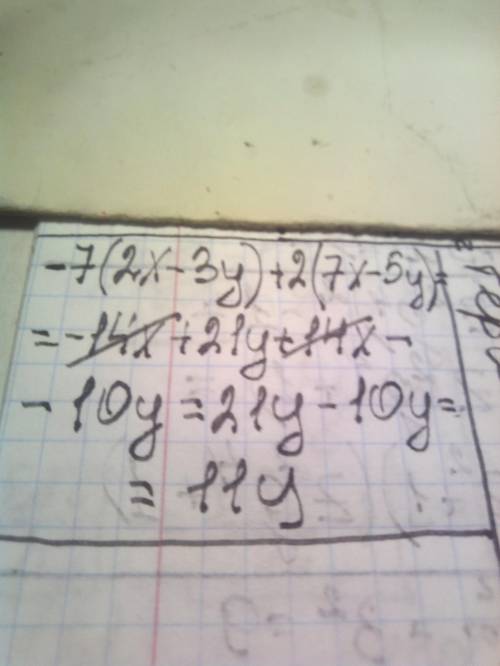 -7(2x-3y)+2(7x-5y)=
=-14x+21y+14x-
-10y=21y-10y=
=11y